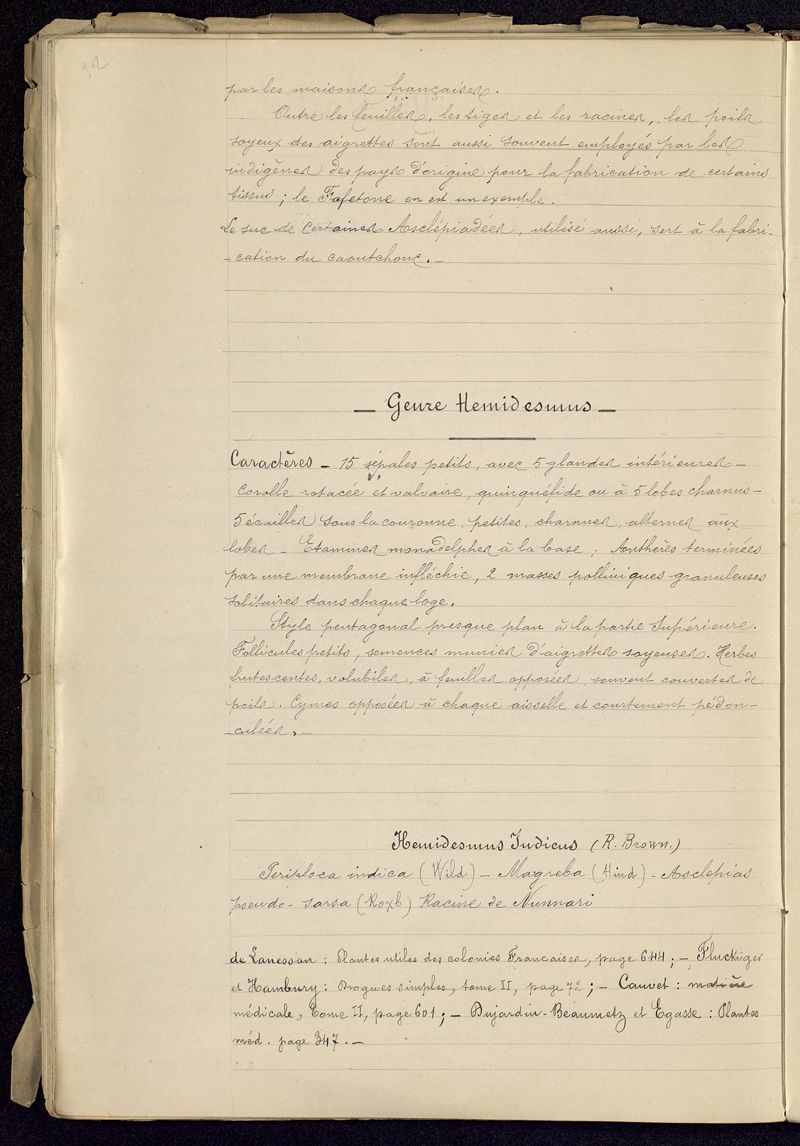 92
par les maisons françaises.
Outre les feuilles, les tiges et les racines, les poils
soyeux des aigrettes sont aussi souvent employés par les
indigènes des pays d'origine pour la fabrication de certains
tissus ; le Fafetone en est un exemple.
Le suc de certaines Asclépiadées, utilisé aussi, sert à la fabri-
-cation du caoutchouc. —
— Genre Hemidesmus —
Caractères — 15 sépales petits, avec 5 glandes intérieures —
Corolle rotacée et valvaire, quinquéfide ou à 5 lobes charnus —
5 écailles sous la couronne, petites, charnues, alternes aux
lobes — Etamines monadelphes à la base ; Anthères terminées
par une membrane infléchie, 2 masses polliniques granuleuses
solitaires dans chaque loge.
Style pentagonal presque plan à la partie supérieure.
Follicules petits, semences munies d'aigrettes soyeuses. Herbes
frutescentes, volubiles, à feuilles opposées, souvent couvertes de
poils. Cymes opposées à chaque aisselle et courtement pédon-
-culées. —
Hemidesmus Indicus (R. Brown.)
Periploca indica (Wild) — Magreba (Hind) - Asclepias
pseudo-sarsa (Roxb) Racine de Nunnari
de Lanessan : Plantes utiles des colonies Francaises, page 644 ; — Fluckiger
et Hambury : Drogues simples, tome II, page 72 ; — Cauvet : matière
médicale, Tome II, page 601 ; — Dujardin-Beaumetz et Egasse : Plantes
méd. page 347. —